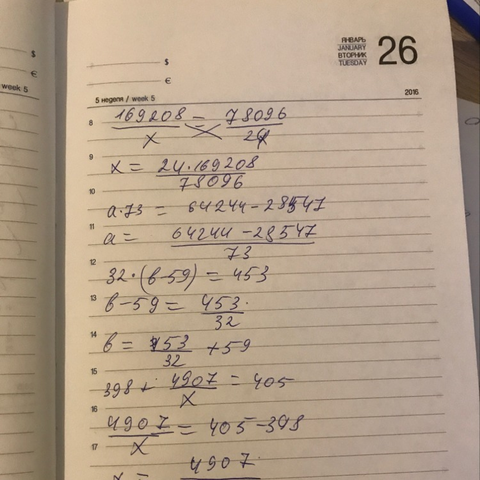 $
€
week 5
$
€
ЯНВАРЬ
JANUARY
ВТОРНИК
TUESDAY
26
5 неделя / week 5
2016
8
169208/x = 78096/24
9
x = 24·169208/78096
10
a·73 = 64244-28547
11
a = 64244-28547/73
12
32·(b-59) = 453
13
b-59 = 453/32
14
b = 453/32 +59
15
398 + 4907/x = 405
16
4907/x = 405-398
17
x = 4907